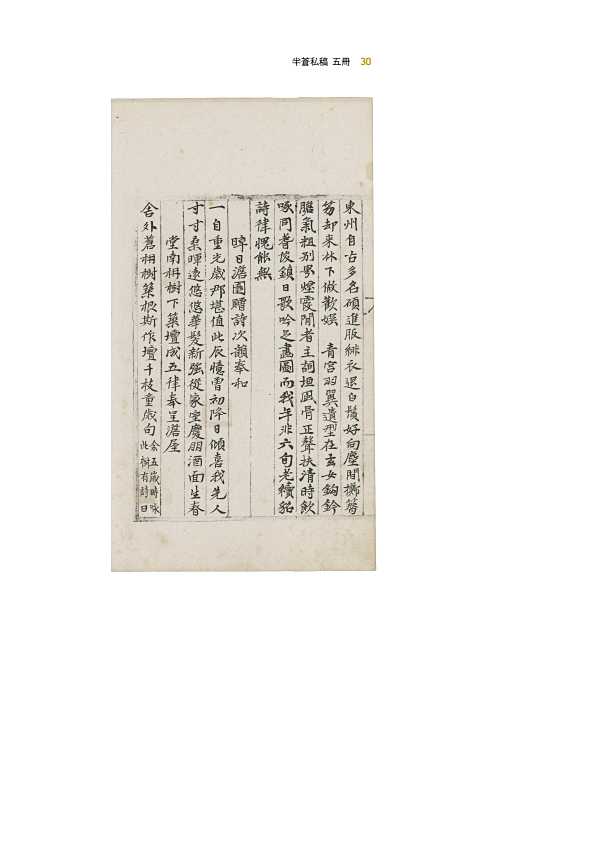 半蒼私稿 五冊 30
東州自古多名碩進服緋衣退白鬚好向塵間擲簪
笏却來林下做歡娛 青宮羽翼遺型在玄女鈎鈐
膽氣粗別界煙霞閒者主詞垣風骨正聲扶清時飲
啄同耆俊鎮日歌吟足畵圖而我年非六旬老續貂
詩律愧能無
晬日澹圃贈詩次韻奉和
一自重光歲那堪值此辰憶曾初降日傾喜我先人
寸寸桑暉遠悠悠華髮新強從家室慶朋酒面生春
堂南枏樹下築壇成五律奉呈澹屋
舍外蒼枏樹築根斯作壇千枝童歲句 余五歲時咏
此樹有詩曰